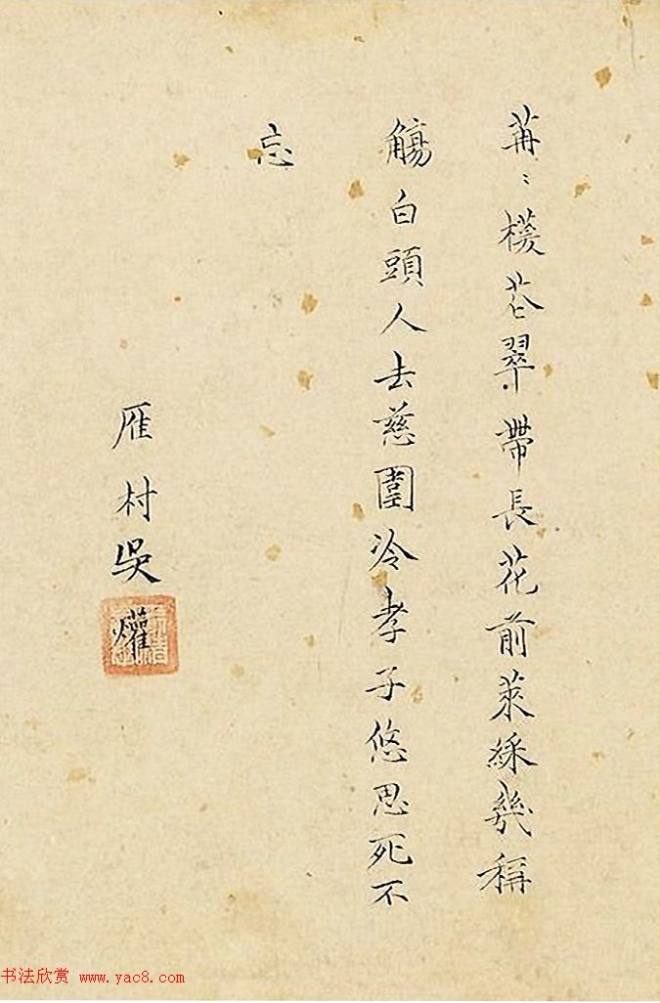 苒〻翠帶長花前萊綵幾稱
觴白頭人去慈圍冷孝子悠思死不
忘
雁村吳爟
书法欣赏 www.yac8.com